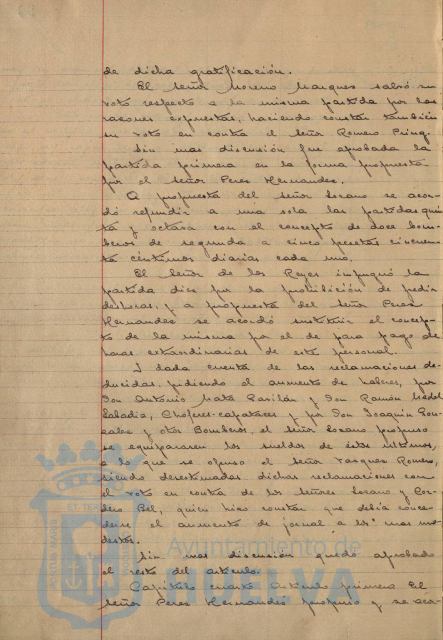 de dicha gratificación.
El Señor Moreno Marques salvó su
voto respecto a la misma partida por las
razones expuestas, haciendo constar también
su voto en contra el señor Romero Prinq.
Sin mas discusión fue aprobada la
partida primera en la forma propuesta
por el señor Peres Hernandez.
A propuesta del señor Lozano se acor-
dó refundir a una sola las partidas quin
ta y octava con el concepto de doce bom-
beros de segunda a cinco pesetas cincuen
ta céntimos diarias cada uno.
El Señor de los Reyes impugnó la
partida diez por la prohibición de
y a propuesta del señor Peres
Hernandez se acordó sustituir el concep-
to de la misma por el de para pago de
horas extraordinarias de este personal.
I dada cuenta de las reclamaciones de-
ducidas, pidiendo el aumento de haberes, por
Don Antonio Mata y Don Ramón
Choferes-capataces y por Don Joaquin Gon-
zalez y otros Bomberos, el señor Lozano propuso
se equipararen los sueldos de estos ultimos,
a lo que se opuso el señor Vasques Romero,
siendo desestimadas dichas reclamaciones con
el voto en contra de los Señores Lozano y Cor-
dero Bel, quien hizo constar que debia conce-
derse el aumento de jornal a los mas mo
destos.
Sin mas discusión quedó aprobado
el resto del articulo.
Capitulo cuarto Articulo primero El
Señor Peres Hernandez propuso y se acor-
Ayuntamiento de
HUELVA